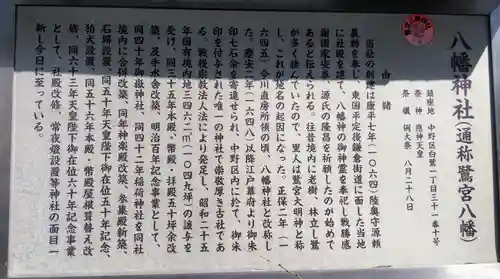 八幡神社(通称鷺宮八幡
鎮座地 中野区白鷺一丁目三十一番十号
祭神 應神天皇
祭儀 例大祭 八月二十八日
由緒
当社の創建は康平七年(一〇六四)陸奥守源頼
義勅を奉じ、東国平定後鎌倉街道に面した当地
に社殿を建て、八幡神の御神霊を奉祀し戦勝感
謝国家安泰、源氏の隆昌を祈願したのが始めで
あると伝えられる。往昔境内に老樹、林立し鷺
が多く棲んでいたので、里人は鷺宮大明神と称
し、これが地名の起因になった。正保二年(一
六四五)今川直房所領の頃、八幡神社と改称し
た。慶安二年(一六四八)以降江戸幕府より御朱
印七石余を寄進せられ、中野区内に於て、御朱
印を付与された唯一の神社で崇敬厚き古社であ
る。戦後宗教法人法により発足し、昭和二十五
年国有境内地三四六二・二(一〇四九坪)の譲与を
受け、同三十五年本殿、幣殿、拝殿五十坪余改
築、及手水舎改築、明治百年記念事業として、
同四十年御嶽神社、同四十二年稲荷神社を同社
境内に合併改築、同年神楽殿改築、参集殿新築、
石塀設置、同五十年天皇陛下御在位五十年記念、
狛犬設置、同五十六年本殿・幣殿屋根葺替え改
修、同六十三年天皇陛下御在位六十年記念事業
として、社殿改修、常夜燈設置等神社の面目一
新し今日に至っている。